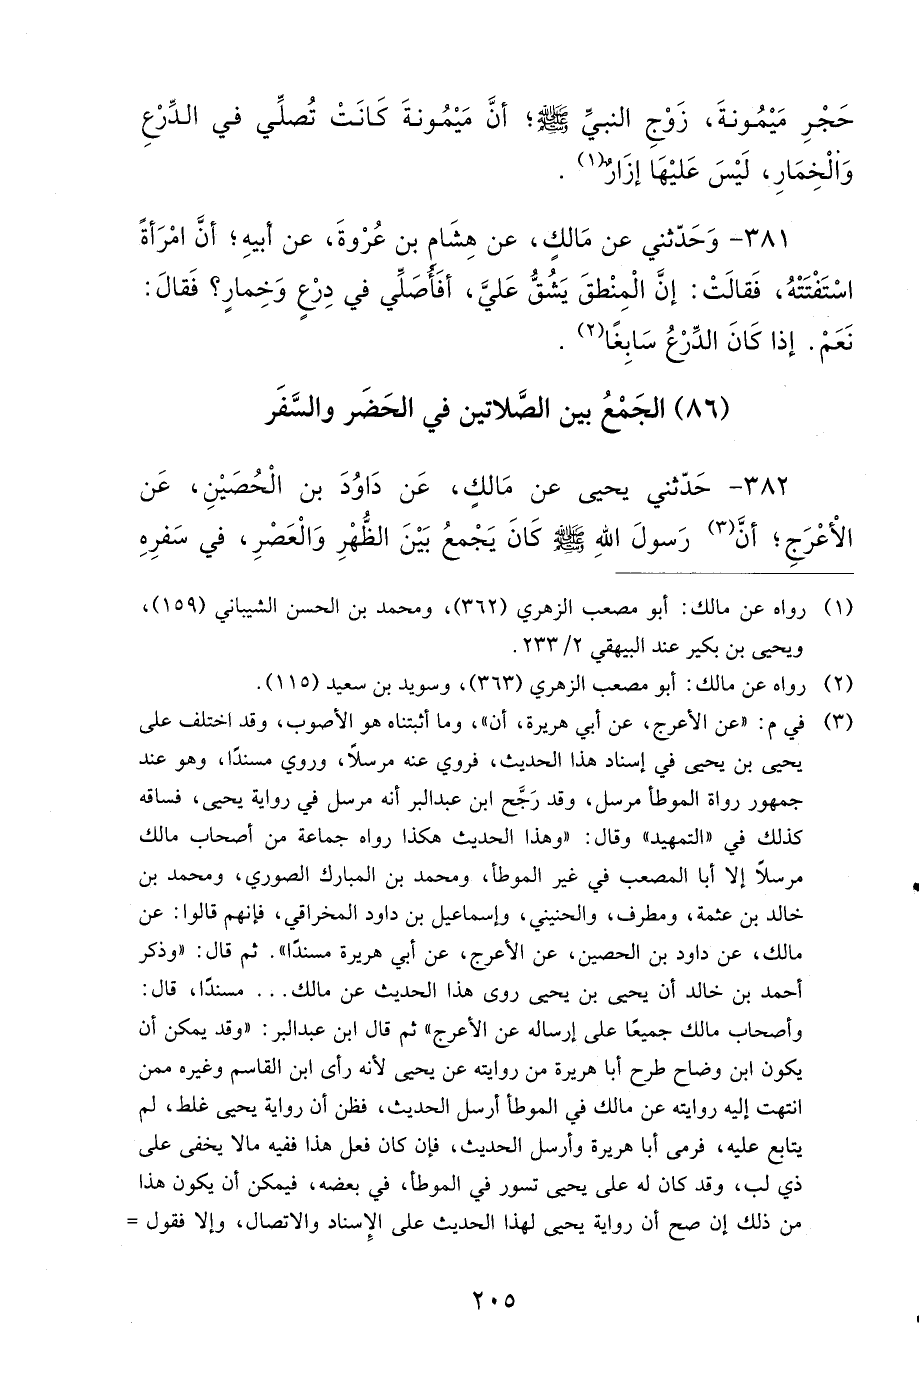 حَجْرِ مَيْمُونةَ، زَوْجِ النبيِّ ﷺ؛ أنَّ مَيْمُونةَ كَانَتْ تُصلِّي في الدِّرْعِ
وَالْخِمَارِ، لَيْسَ عَلَيْهَا إزَارٌ(١) .
٣٨١- وَحَدّثني عن مَالكٍ، عن هِشَامِ بن عُرْوةَ، عن أبيهِ؛ أنَّ امْرَأةً
اسْتَفْتَتْهُ، فَقالَتْ: إنَّ الْمِنْطقَ يَشُقُّ عَليَّ، أفَأُصَلِّي في دِرْعٍ وَخِمارٍ؟ فَقالَ:
نَعَمْ. إذا كَانَ الدِّرْعُ سَابِغًا(٢) .
(٨٦) الجَمْعُ بين الصَّلاتين في الحَضَر والسَّفَر
٣٨٢- حَدّثني يحيى عن مَالكٍ، عَن دَاوُدَ بن الْحُصَيْنِ، عَن
الْأعْرَجِ؛ أنَّ(٣) رَسولَ اللهِ ﷺ كَانَ يَجْمعُ بَيْنَ الظُّهْرِ وَالْعَصْرِ، في سَفرِهِ
(١) رواه عن مالك: أبو مصعب الزهري (٣٦٢)، ومحمد بن الحسن الشيباني (١٥٩)،
ويحيى بن بكير عند البيهقي ٢/ ٢٣٣.
(٢) رواه عن مالك: أبو مصعب الزهري (٣٦٣)، وسويد بن سعيد (١١٥).
(٣) في م: «عن الأعرج، عن أبي هريرة، أن»، وما أثبتناه هو الأصوب، وقد اختلف على
يحيى بن يحيى في إسناد هذا الحديث، فروي عنه مرسلاً، وروي مسندًا، وهو عند
جمهور رواة الموطأ مرسل، وقد رَجَّح ابن عبدالبر أنه مرسل في رواية يحيى، فساقه
كذلك في «التمهيد» وقال: «وهذا الحديث هكذا رواه جماعة من أصحاب مالك
مرسلاً إلا أبا المصعب في غير الموطأ، ومحمد بن المبارك الصوري، ومحمد بن
خالد بن عثمة، ومطرف، والحنيني، وإسماعيل بن داود المخراقي، فإنهم قالوا: عن
مالك، عن داود بن الحصين، عن الأعرج، عن أبي هريرة مسندًا». ثم قال: «وذكر
أحمد بن خالد أن يحيى بن يحيى روى هذا الحديث عن مالك... مسندًا، قال:
وأصحاب مالك جميعًا على إرساله عن الأعرج» ثم قال ابن عبدالبر: «وقد يمكن أن
يكون ابن وضاح طرح أبا هريرة من روايته عن يحيى لأنه رأى ابن القاسم وغيره ممن
انتهت إليه روايته عن مالك في الموطأ أرسل الحديث، فظن أن رواية يحيى غلط، لم
يتابع عليه، فرمى أبا هريرة وأرسل الحديث، فإن كان فعل هذا ففيه مالا يخفى على
ذي لب، وقد كان له على يحيى تسور في الموطأ، في بعضه، فيمكن أن يكون هذا
من ذلك إن صح أن رواية يحيى لهذا الحديث على الإسناد والاتصال، وإلا فقول =
٢٠٥